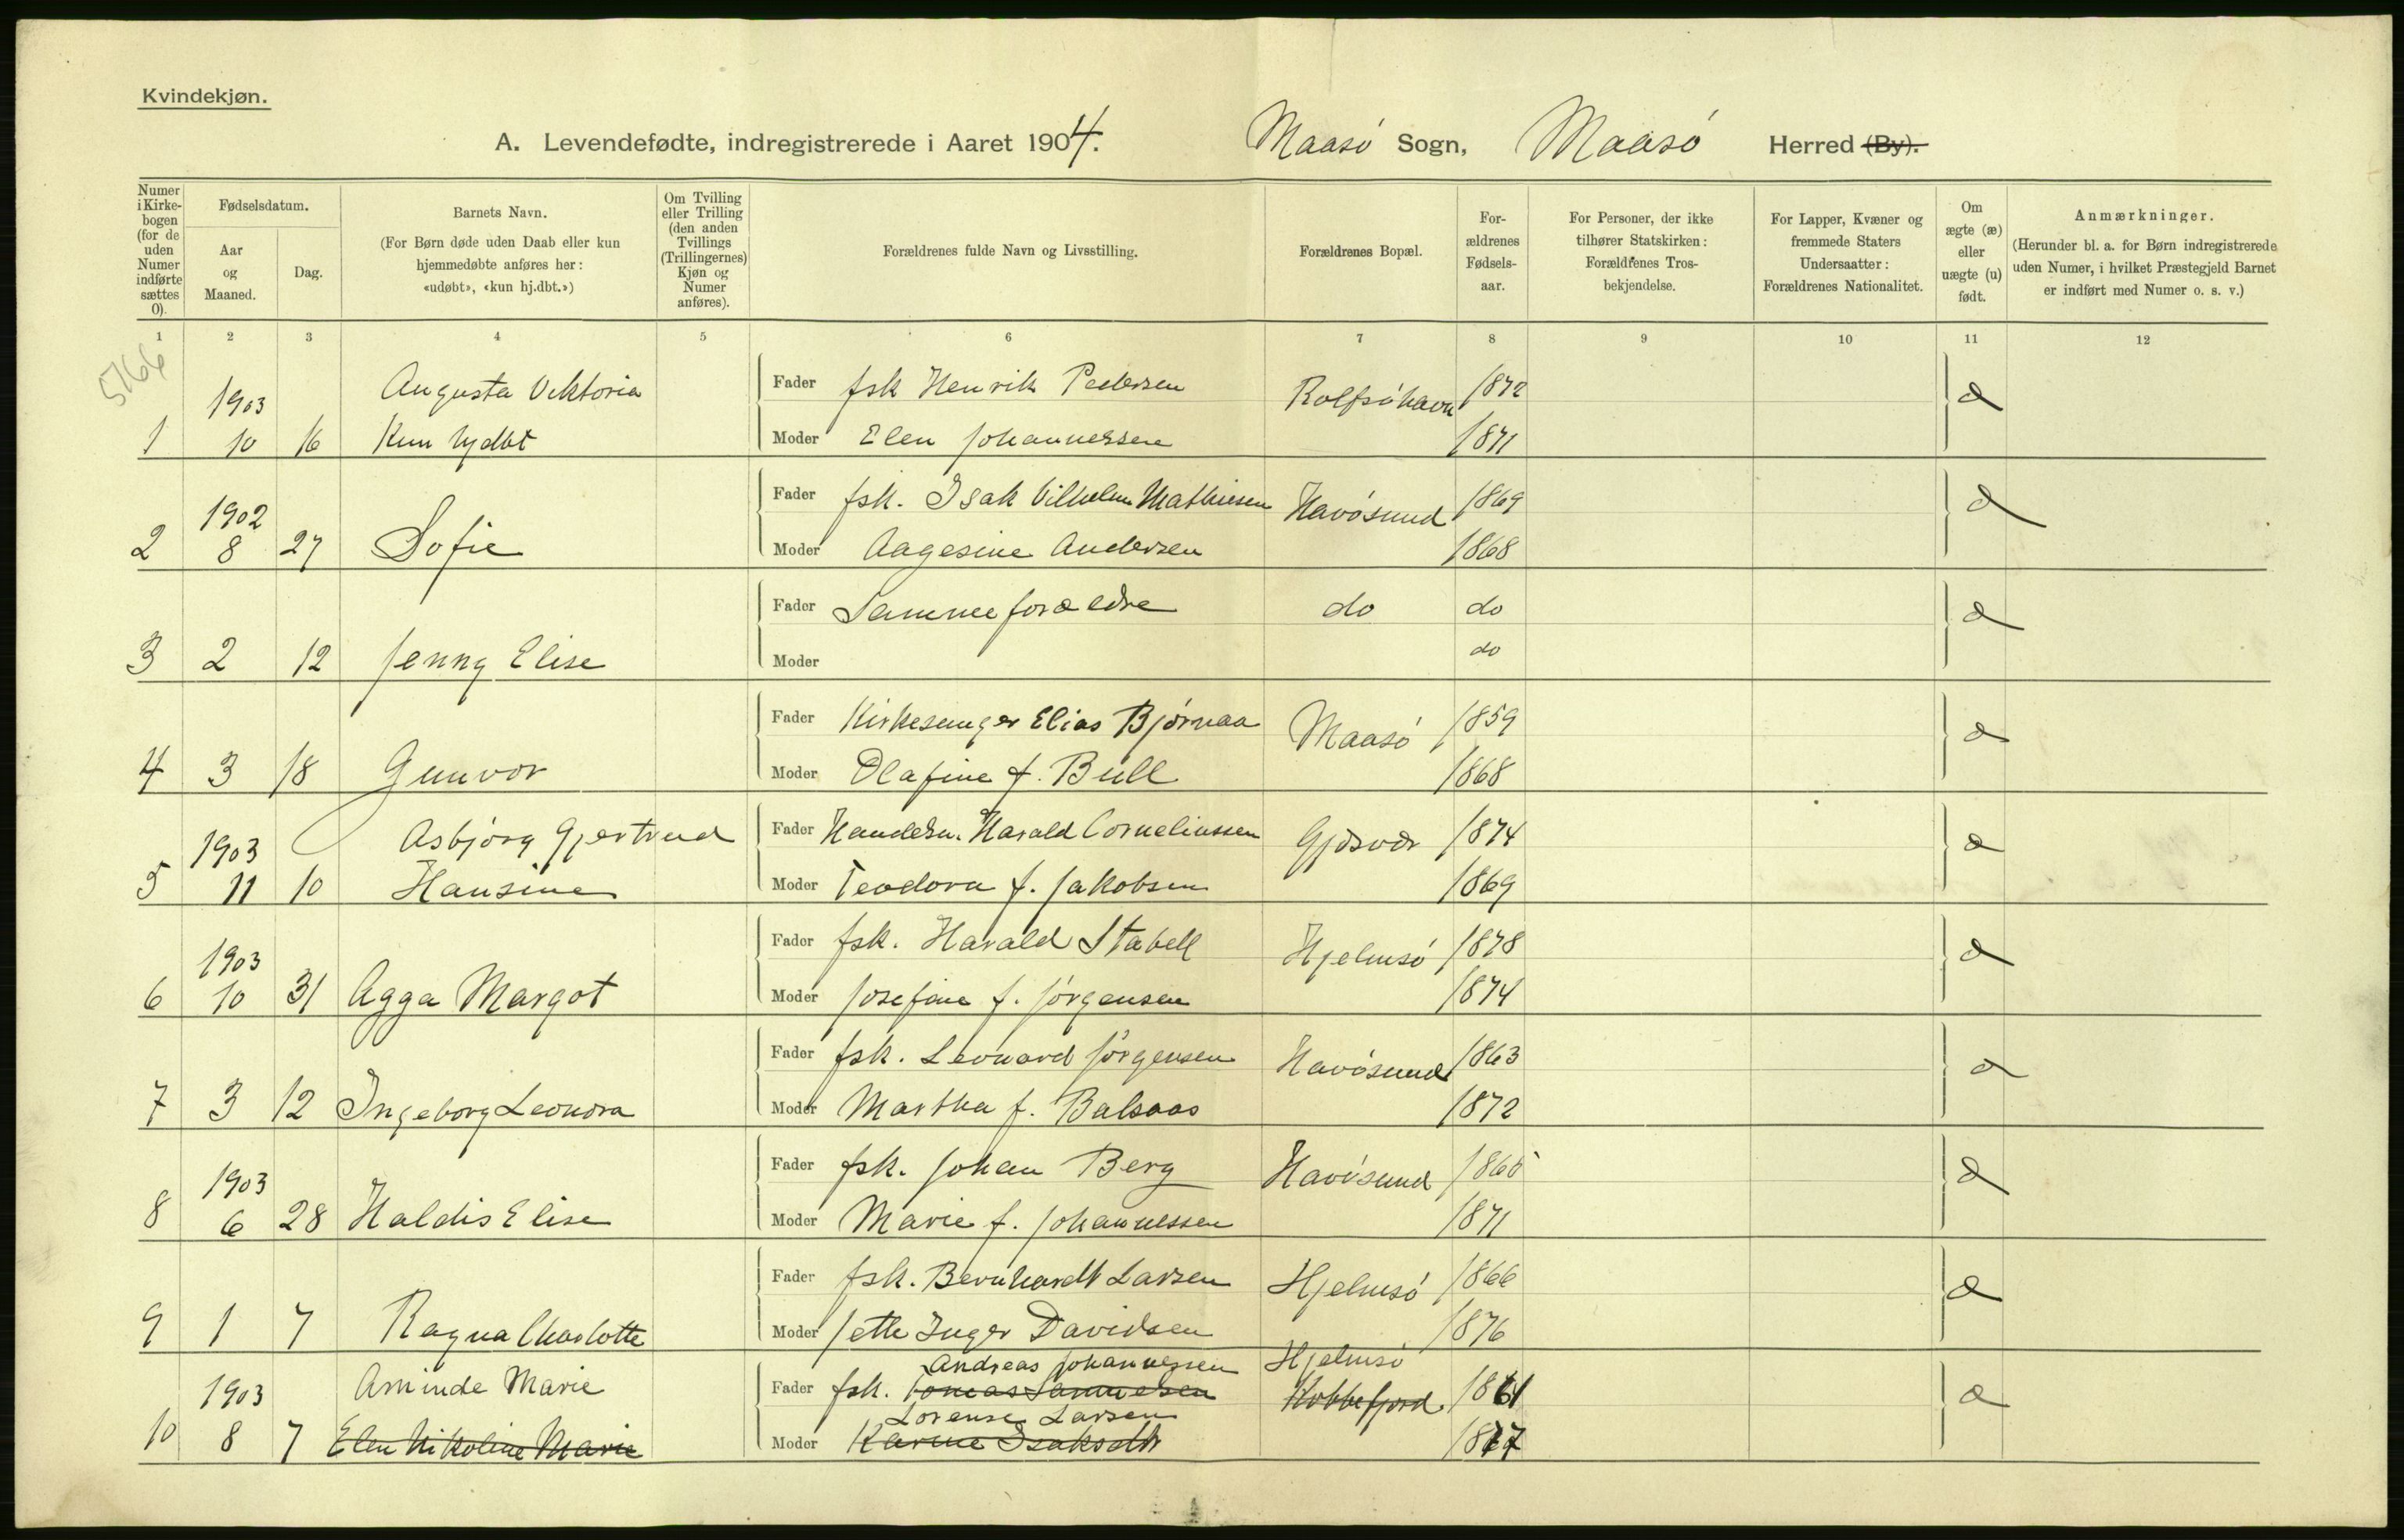 Kvindekjøn.
A. Levendefødte, indregistrerede i Aaret 1904. Maasö Sogn, Maasö Herred (By).
Numer i Kirke-bogen (for de uden Numer indførte sættes 0).
Fødselsdatum.
Aar og Maaned.
Dag.
Barnets Navn.
(For Børn døde uden Daab eller kun hjemmedøbte anføres her: «udøbt», «kun hj.dbt.»)
Om Tvilling eller Trilling (den anden Tvillings (Trillingernes) Kjøn og Numer anføres).
Forældrenes fulde Navn og Livsstilling.
Forældrenes Bopæl.
For-ældrenes Fødsels-aar.
For Personer, der ikke tilhører Statskirken: Forældrenes Tros-bekjendelse.
For Lapper, Kvæner og fremmede Staters Undersaatter: Forældrenes Nationalitet.
Om ægte (æ) eller uægte (u) født.
Anmærkninger.
(Herunder bl. a. for Børn indregistrerede uden Numer, i hvilket Præstegjeld Barnet er indført med Numer o. s. v.)
1 2 3 4 5 6 7 8 9 10 11 12
5766
1903 Augusta Viktoria Fader fsk Henrik Pedersen Rolfsöhavn 1872 æ
1 10 16 Kun hjdbt Moder Elen Johannessen 1871
1902 Fader fsk. Isak Vilhelm Mathiesen Havösund 1869 æ
2 8 27 Sofie Moder Aagesine Andersen 1868
Fader Samme forældre do do æ
3 2 12 Jenny Elise Moder do
Fader Kirkesanger Elias Björnaa Maasö 1859 æ
4 3 18 Gunvor Moder Olafine f. Bull 1868
1903 Asbjörg Gjertrud Fader Handelsn. Harald Corneliussen Gjæsvær 1874 æ
5 11 10 Hansine Moder Teodora f. Jakobsen 1869
1903 Fader fsk. Harald Stabell Hjelmsö 1878 æ
6 10 31 Agga Margot Moder Josefine f. Jörgensen 1874
Fader fsk. Leonard Jörgensen Havösund 1863 æ
7 3 12 Ingeborg Leonora Moder Martha f. Balsaas 1872
1903 Fader fsk. Johan Berg Havösund æ
8 6 28 Haldis Elise Moder Marie f. Johannessen 1871
Fader fsk. Bernhardt Larsen Hjelmsö 1866 æ
9 1 7 Ragna Charlotte Moder Jette Inger Davidsen 1876
Andreas Johannessen Hjelmsö
1903 Arminde Marie Fader fsk. Tomas Samuelsen Kobbefjord. 1861 æ
Lorense Larsen
10 8 7 Elen Nikoline Marie Moder Karine Isaksdtr 1877